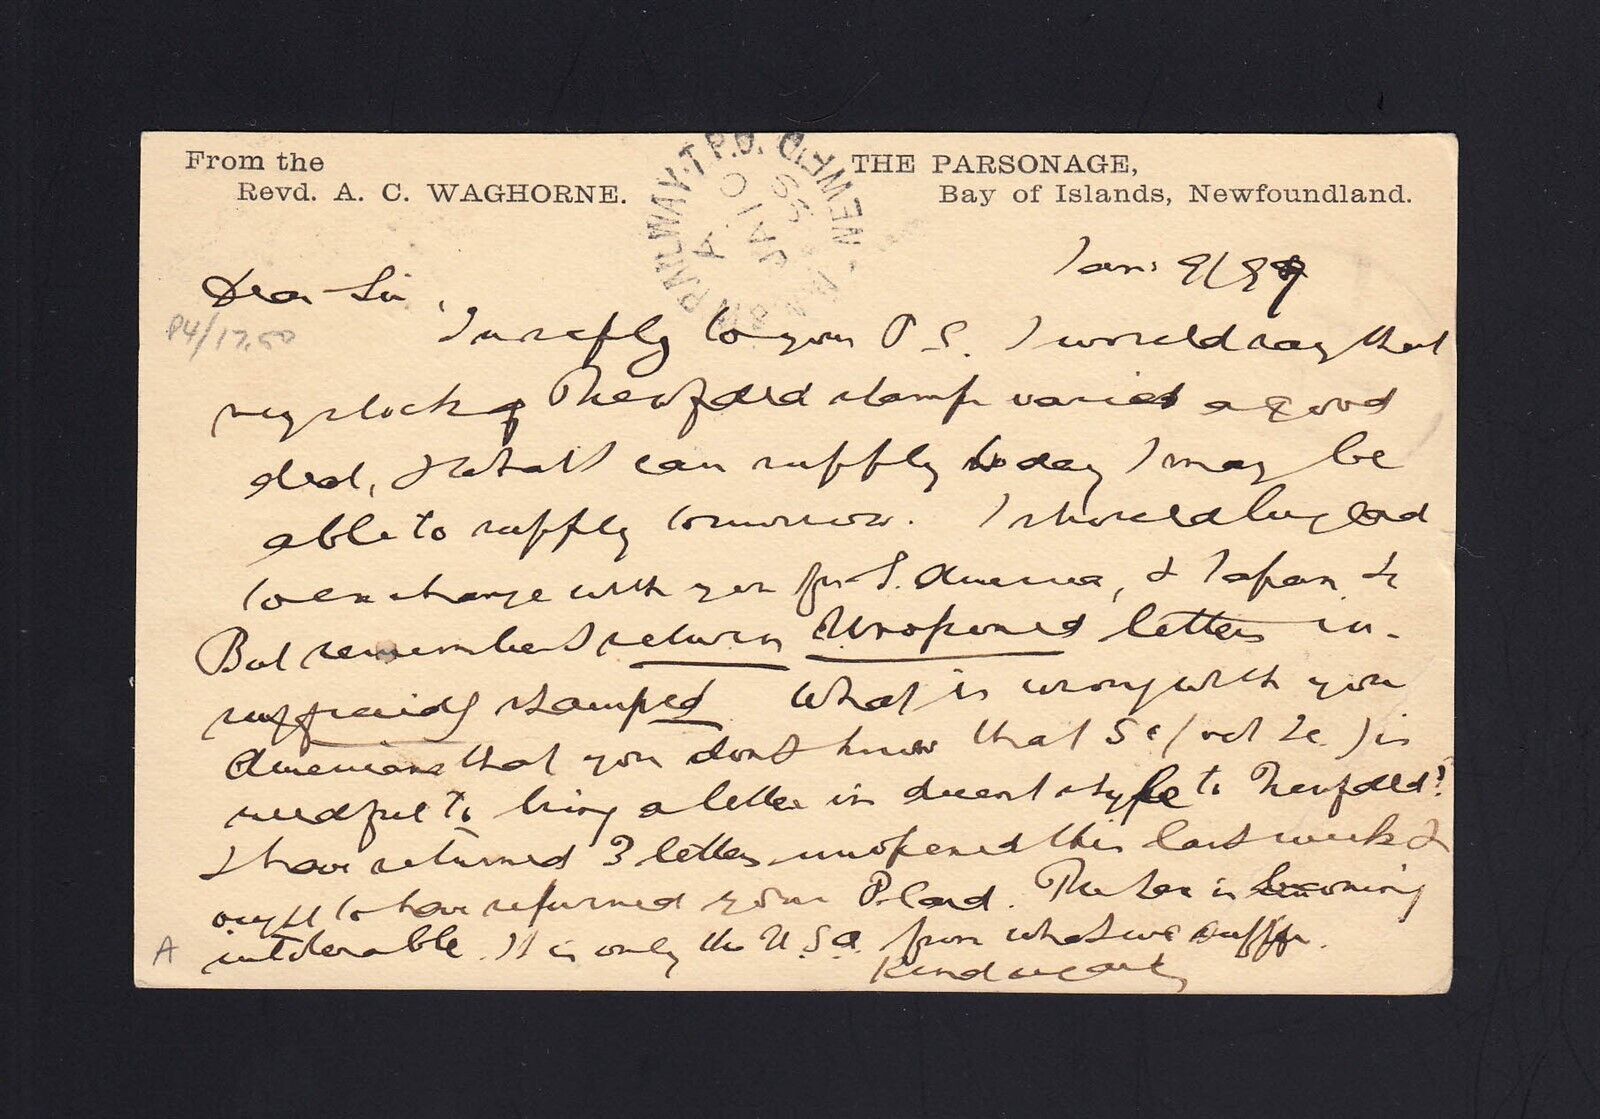 From the
Revd. A. C. WAGHORNE.
THE PARSONAGE,
Bay of Islands, Newfoundland.
N & W RAILWAY. T.P.O. NEWF'D
A
JA 10
99
Jan: 9/99
Dear Sir,
P4/17.50
In reply to your P.S. I would say that
my stock of Newfdld stamps varies a good
deal, & what I can supply today I may be
able to supply tomorrow. I should be glad
to exchange with you for S. America, & Japan &c
But remember I return Unopened letters in-
sufficiently stamped. What is wrong with you
Americans that you dont know that 5c (not 2c.) is
needful to bring a letter in decent style to Newfdld?
I have returned 3 letters unopened this last week &
ought to have returned your P. Card. The tax is becoming
intolerable. It is only the U.S.A. from what we suffer.
Kind regards
A